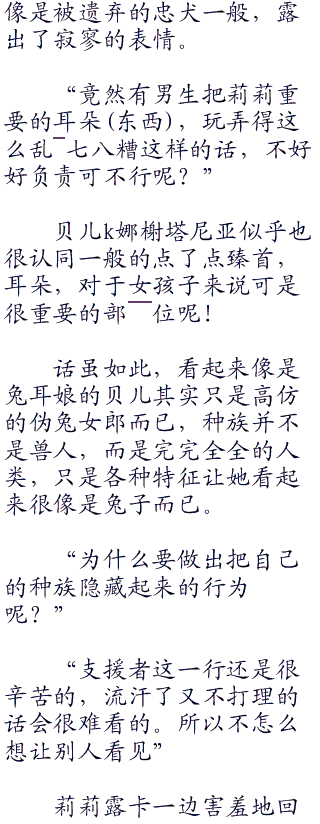 像是被遗弃的忠犬一般，露
出了寂寥的表情。
“竟然有男生把莉莉重
要的耳朵(东西)，玩弄得这
么乱¯七八糟这样的话，不好
好负责可不行呢？”
贝儿k娜榭塔尼亚似乎也
很认同一般的点了点臻首，
耳朵，对于女孩子来说可是
很重要的部¯¯位呢！
话虽如此，看起来像是
兔耳娘的贝儿其实只是高仿
的伪兔女郎而已，种族并不
是兽人，而是完完全全的人
类，只是各种特征让她看起
来很像是兔子而已。
“为什么要做出把自己
的种族隐藏起来的行为
呢？”
“支援者这一行还是很
辛苦的，流汗了又不打理的
话会很难看的。所以不怎么
想让别人看见”
莉莉露卡一边害羞地回